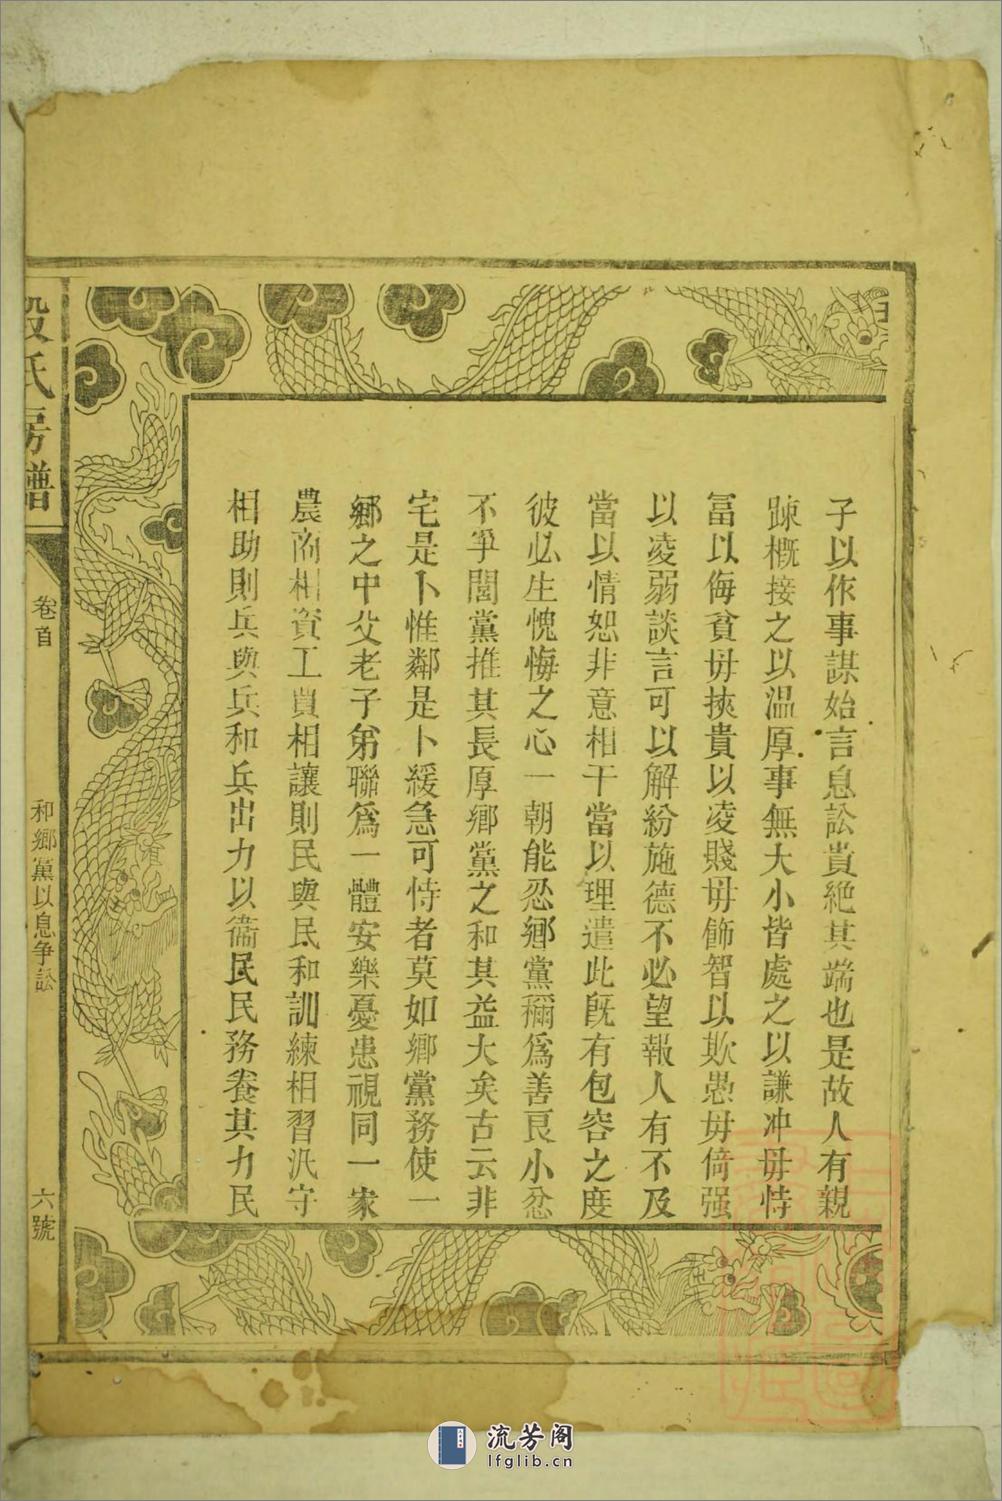 子以作事謀始言息訟貴絶其端也是故人有親
踈概接之以温厚事無大小皆處之以謙冲毋恃
冨以侮貧毋挾貴以凌賤毋飾智以欺愚毋倚强
以凌弱談言可以解紛施德不必望報人有不及
當以情恕非意相干當以理遣此旣有包容之度
彼必生愧悔之心一朝能忍鄉黨稱爲善良小忿
不爭閭黨推其長厚鄉黨之和其益大矣古云非
宅是卜惟鄰是卜緩急可恃者莫如鄉黨務使一
鄉之中父老子弟聯爲一體安樂憂患視同一家
農商相資工買相讓則民與民和訓練相習汛守
相助則兵與兵和兵出力以衞民民務養其力民
段氏房譜
卷首
和鄉黨以息争訟
六號
流芳阁
lfglib.cn